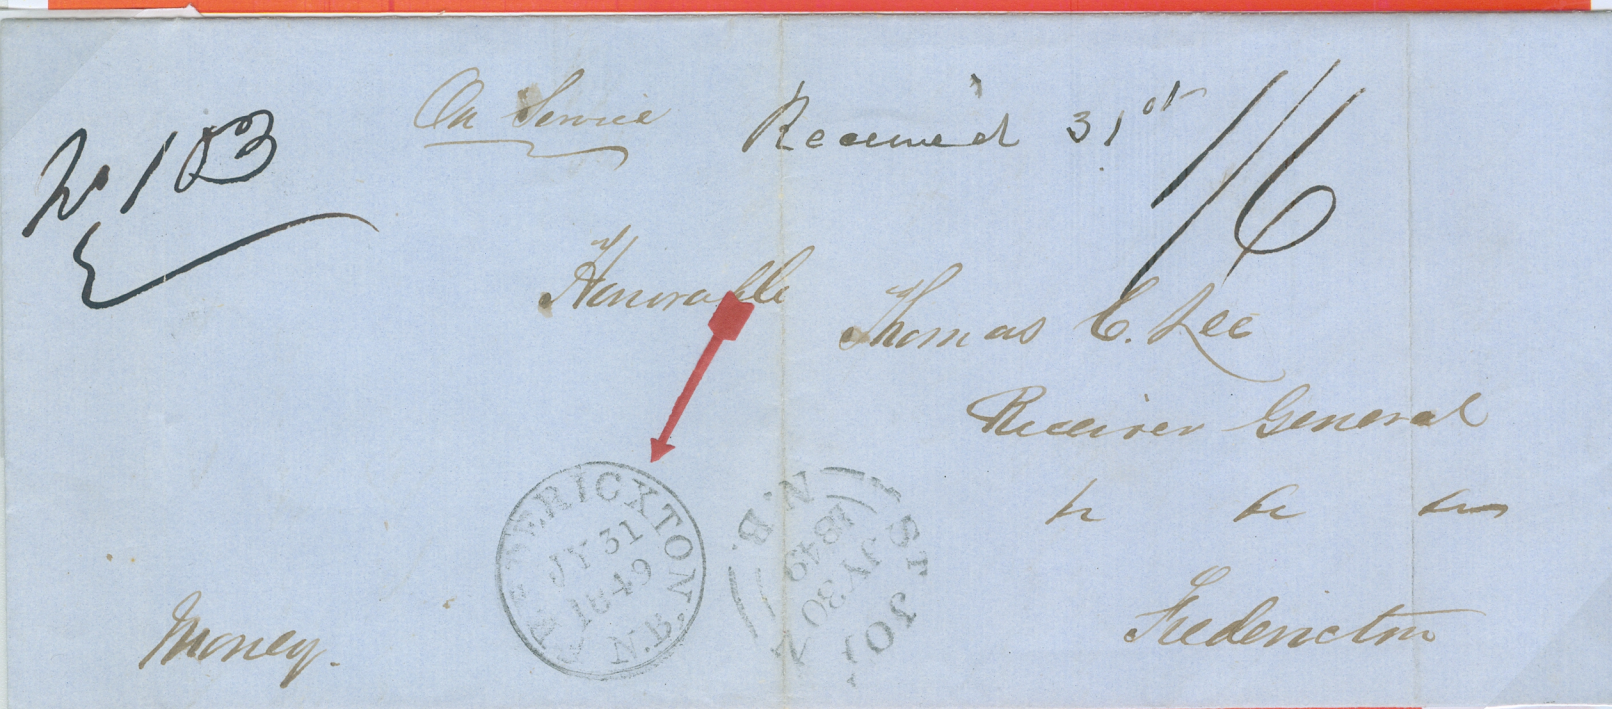 On Service
Received 31st
1/6
No 103
Honorable
Thomas C. Lee
Receiver General
Fredericton
Money.
FREDERICXTON. N.B.
JY 31
1849
ST JOHN N.B.
JY 30
1849